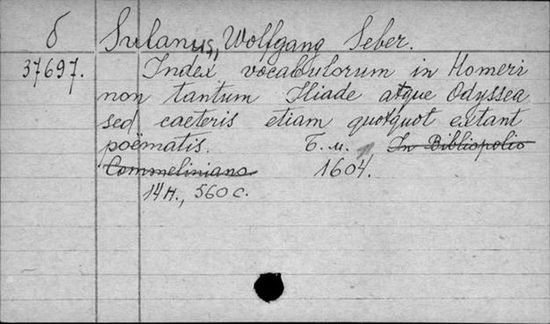 б Sulanus, Wolfgang Seber.
37697. Index vocabulorum in Homeri
non tantum Iliade atque Odyssea
sed caeteris etiam quotquot extant
poëmatis. Б.м. In Bibliopolio
Commeliniano 1604.
14 н., 560 с.